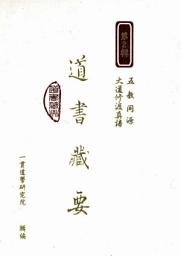 第2輯
五教同源
大道修渡真諦
道書藏要
一貫道學研究院　輯編